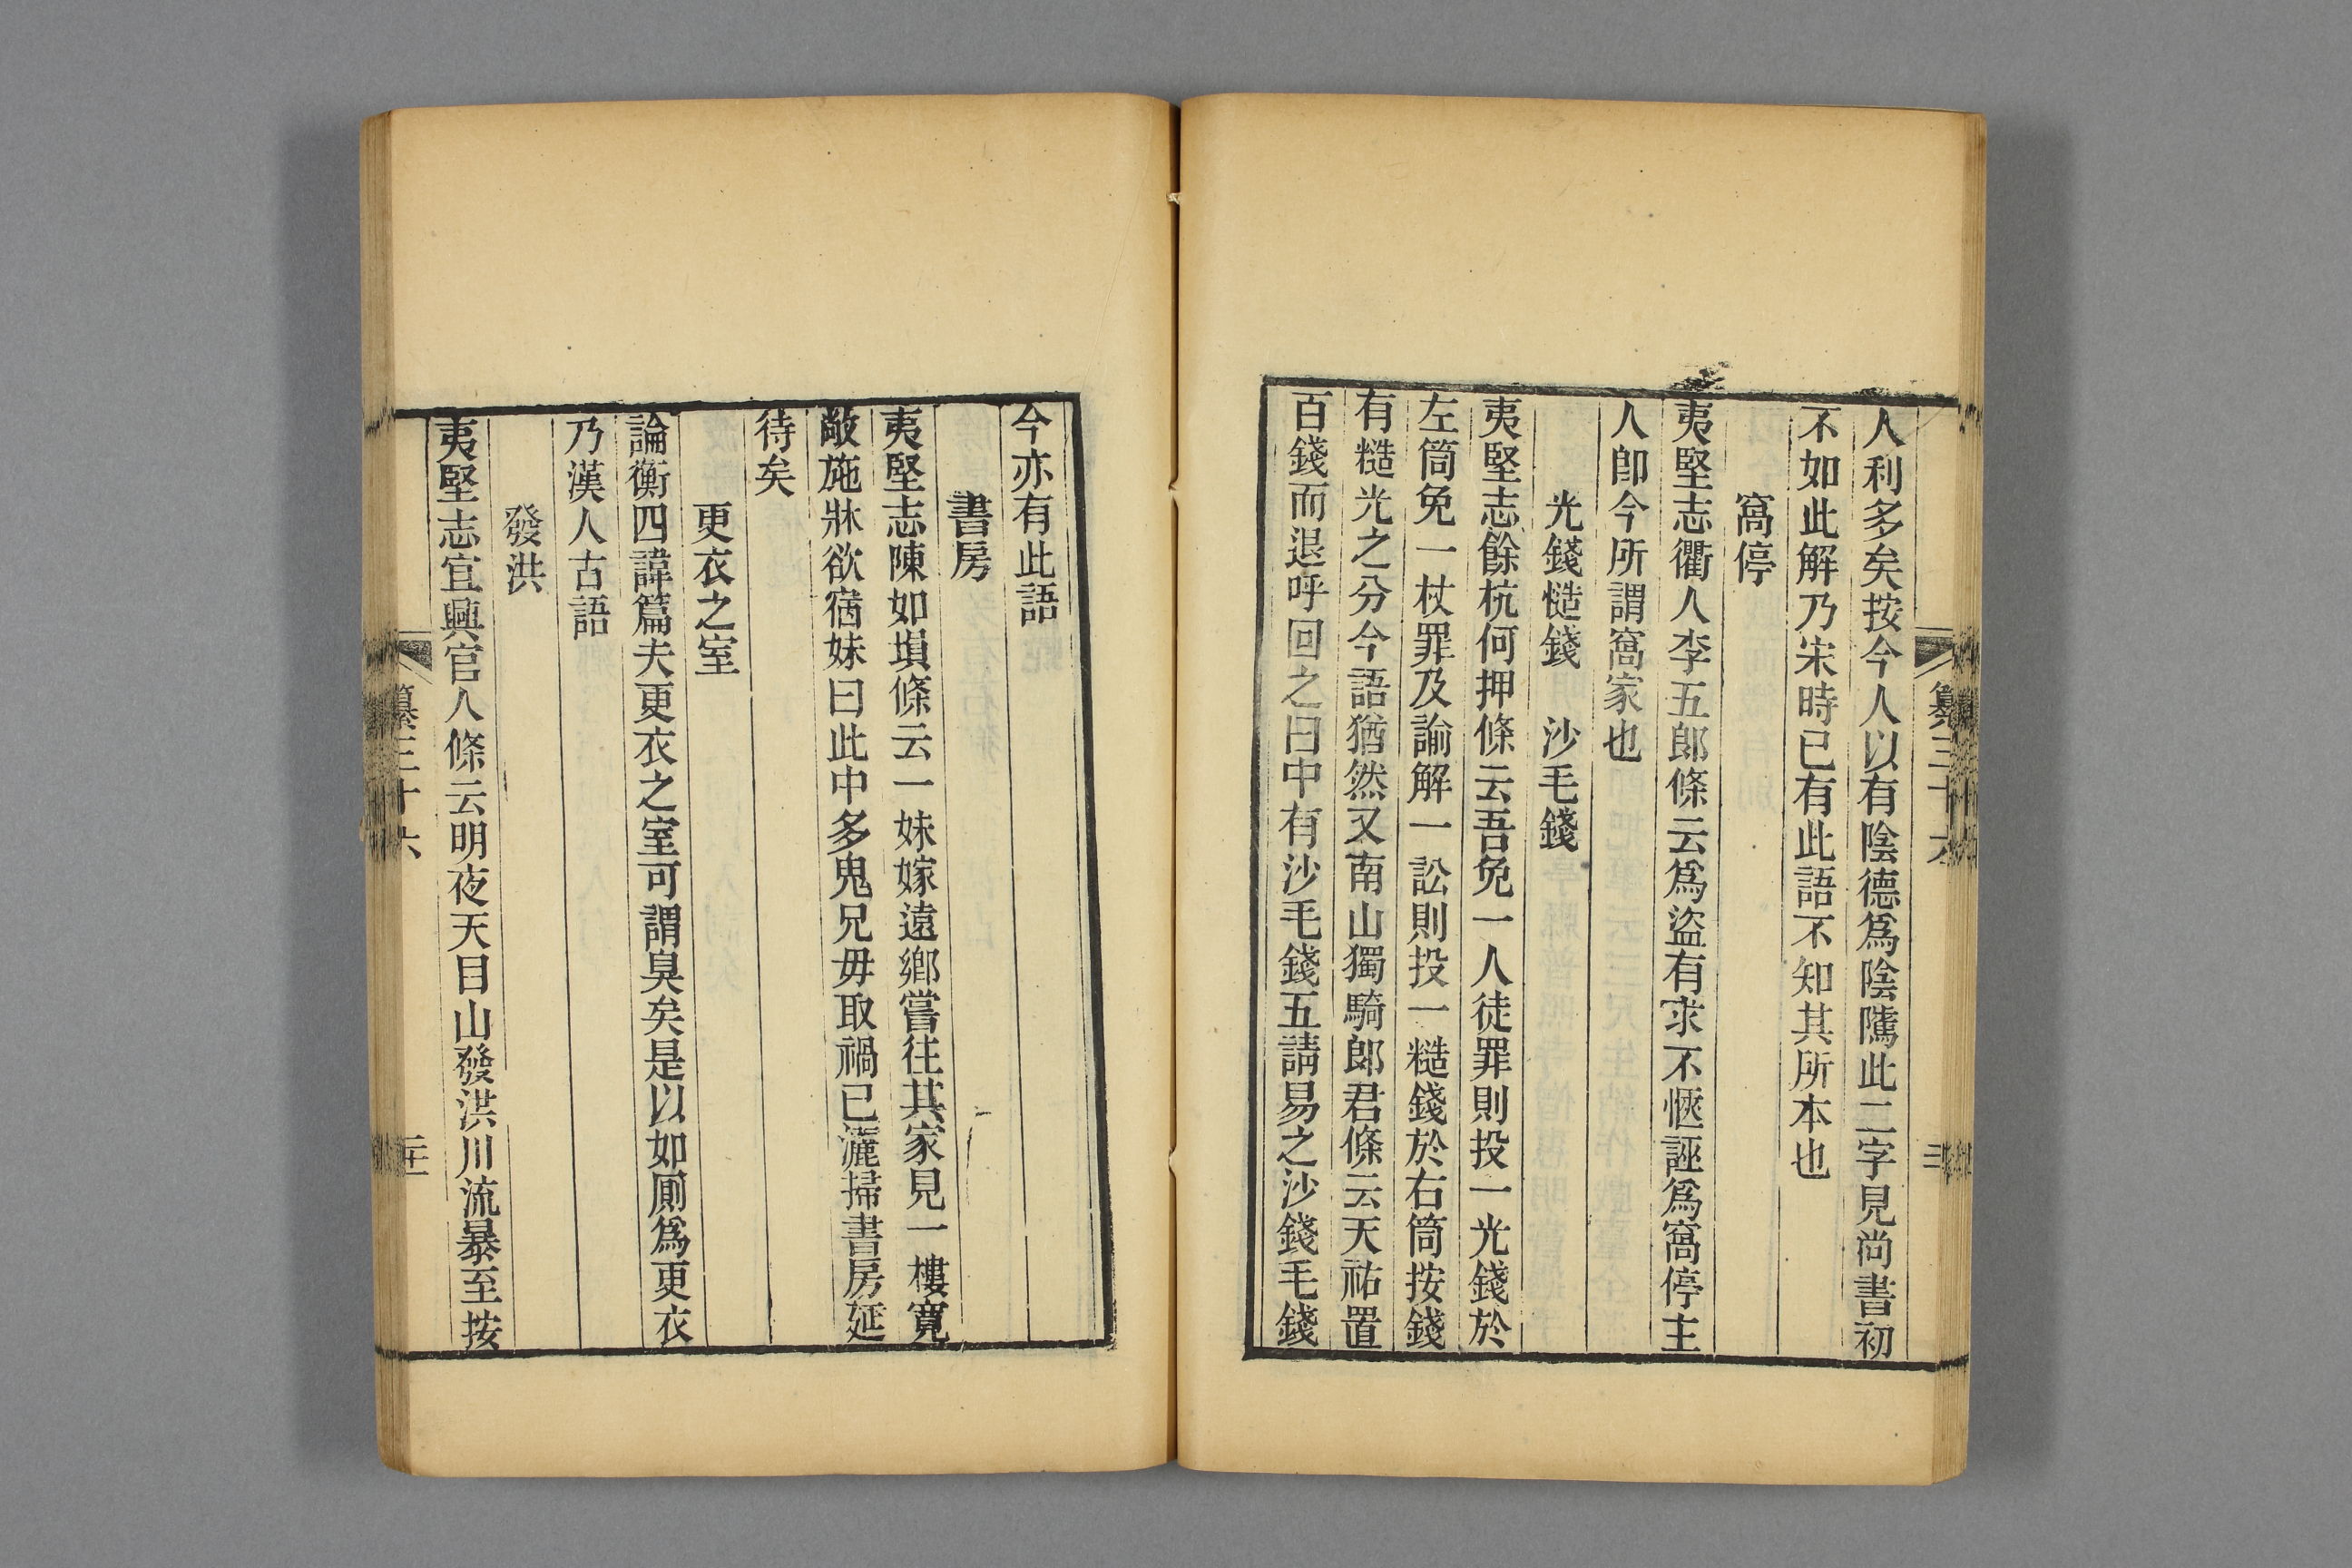 人利多矣按今人以有陰德爲陰隲此二字見尚書初
不如此解乃宋時已有此語不知其所本也
窩停
夷堅志衢人李五郎條云爲盜有求不愜誣爲窩停主
人卽今所謂窩家也
光錢慥錢　沙毛錢
夷堅志餘杭何押條云吾免一人徒罪則投一光錢於
左筒免一杖罪及諭解一訟則投一糙錢於右筒按錢
有糙光之分今語猶然又南山獨騎郎君條云天祐置
百錢而退呼回之曰中有沙毛錢五請易之沙錢毛錢
今亦有此語
書房
夷堅志陳如塤條云一妹嫁遠鄉嘗往其家見一樓寬
敞施牀欲宿妹曰此中多鬼兄毋取禍已灑掃書房延
待矣
更衣之室
論衡四諱篇夫更衣之室可謂臭矣是以如厠爲更衣
乃漢人古語
發洪
夷堅志宜興官人條云明夜天目山發洪川流暴至按
纂三十六